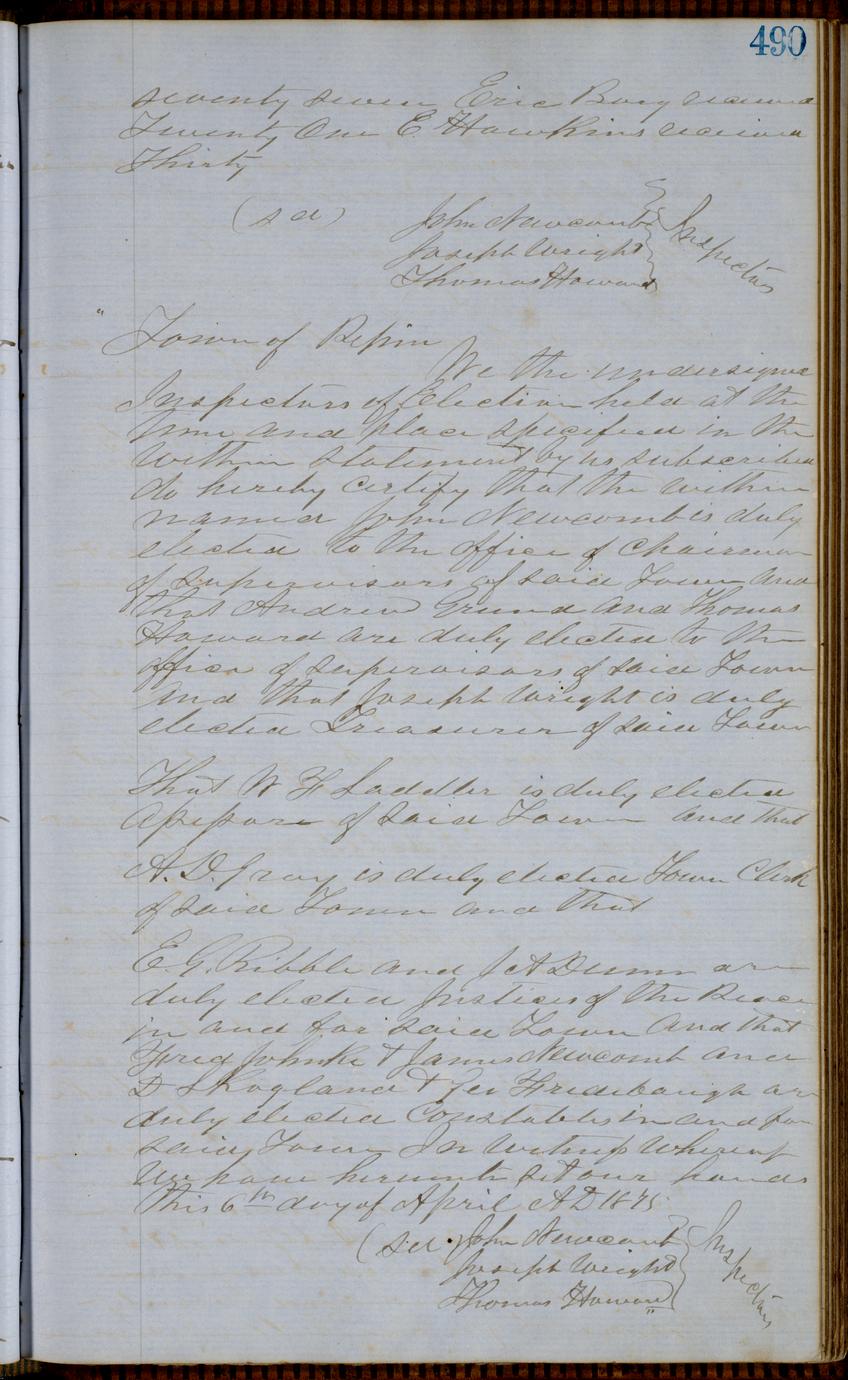 490
seventy seven Eric Berg received
Twenty One E. Hawkins received
Thirty
(sd)
John Newcomb
Joseph Wright
Thomas Howard
Inspectors
" Town of Pepin
We the undersigned
Inspectors of Election held at the
time and place specified in the
within statement by us subscribed
do hereby certify that the within
named John Newcomb is duly
elected to the office of Chairman
of supervisors of said Town and
that Andrew Grund and Thomas
Howard are duly elected to the
office of supervisors of said Town
and that Joseph Wright is duly
elected Treasurer of said Town
That W F Saddler is duly elected
Assessor of said Town and that
A. D. Gray is duly elected Town Clerk
of said Town and that
E. G. Ribble and J A Dunn are
duly elected Justices of the Peace
in and for said Town and that
Fred Johnke & James Newcomb and
D Skogland & Geo Fridebaugh are
duly elected Constables in and for
said Town In Witness Whereof
We have hereunto set our hands
this 6th day of April AD 1875
(sd. John Newcomb
Joseph Wright
Thomas Howard"
Inspectors